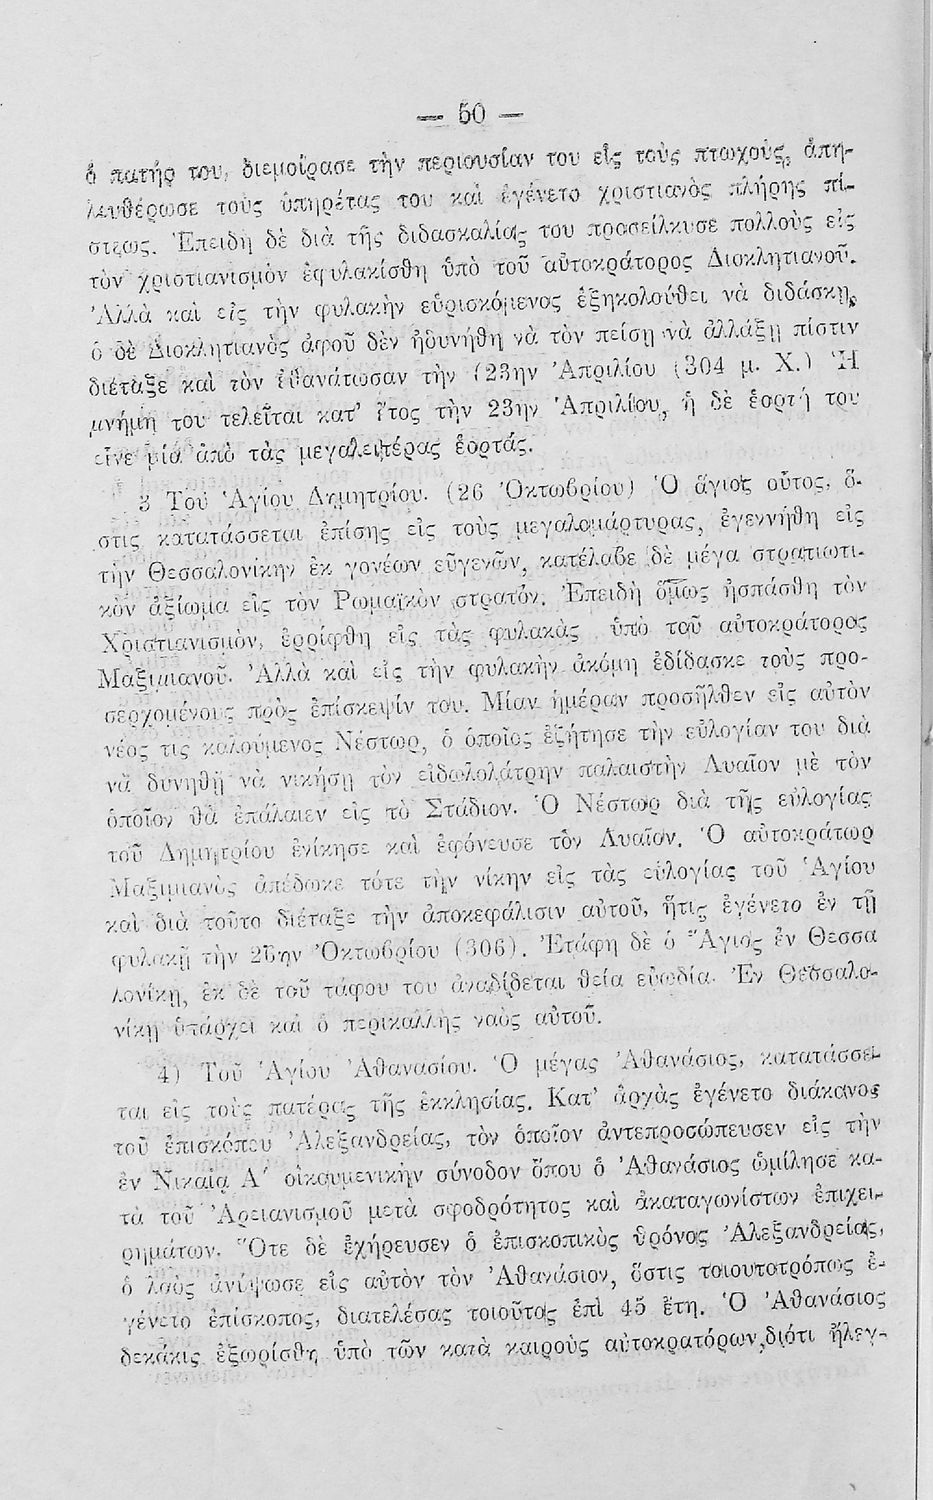 — 50 —
ὁ πατήρ του, διεμοίρασε τὴν περιουσίαν του εἰς τοὺς πτωχούς, ἀπη-
λευθέρωσε τοὺς ὑπηρέτας του καὶ ἐγένετο χριστιανὸς πλήρης πί-
στεως. Ἐπειδὴ δὲ διὰ τῆς διδασκαλίας του προσείλκυσε πολλοὺς εἰς
τὸν χριστιανισμὸν ἐφυλακίσθη ὑπὸ τοῦ αὐτοκράτορος Διοκλητιανοῦ.
Ἀλλὰ καὶ εἰς τὴν φυλακὴν εὑρισκόμενος ἐξηκολούθει νὰ διδάσκῃ,
ὁ δὲ Διοκλητιανὸς ἀφοῦ δὲν ἠδυνήθη νὰ τὸν πείσῃ νὰ ἀλλάξῃ πίστιν
διέταξε καὶ τὸν ἐθανάτωσαν τὴν (23ην Ἀπριλίου (304 μ. Χ.) Ἡ
μνήμη του τελεῖται κατ' ἔτος τὴν 23ην Ἀπριλίου, ἡ δὲ ἑορτή του
εἶνε μία ἀπὸ τὰς μεγαλειτέρας ἑορτάς.
3 Τοῦ Ἁγίου Δημητρίου. (26 Ὀκτωβρίου) Ὁ ἅγιος οὗτος, ὅ-
στις κατατάσσεται ἐπίσης εἰς τοὺς μεγαλομάρτυρας, ἐγεννήθη εἰς
τὴν Θεσσαλονίκην ἐκ γονέων εὐγενῶν, κατέλαβε δὲ μέγα στρατιωτι-
κὸν ἀξίωμα εἰς τὸν Ρωμαϊκὸν στρατόν. Ἐπειδὴ ὅμως ἠσπάσθη τὸν
Χριστιανισμόν, ἐρρίφθη εἰς τὰς φυλακὰς ὑπὸ τοῦ αὐτοκράτορος
Μαξιμιανοῦ. Ἀλλὰ καὶ εἰς τὴν φυλακὴν ἀκόμη ἐδίδασκε τοὺς προ-
σερχομένους πρὸς ἐπίσκεψίν του. Μίαν ἡμέραν προσῆλθεν εἰς αὐτὸν
νέος τις καλούμενος Νέστωρ, ὁ ὁποῖος ἐζήτησε τὴν εὐλογίαν του διὰ
νὰ δυνηθῇ νὰ νικήσῃ τὸν εἰδωλολάτρην παλαιστὴν Λυαῖον μὲ τὸν
ὁποῖον θὰ ἐπάλαιεν εἰς τὸ Στάδιον. Ὁ Νέστωρ διὰ τῆς εὐλογίας
τοῦ Δημητρίου ἐνίκησε καὶ ἐφόνευσε τὸν Λυαῖον. Ὁ αὐτοκράτωρ
Μαξιμιανὸς ἀπέδωκε τότε τὴν νίκην εἰς τὰς εὐλογίας τοῦ Ἁγίου
καὶ διὰ τοῦτο διέταξε τὴν ἀποκεφάλισιν αὐτοῦ, ἥτις ἐγένετο ἐν τῇ
φυλακῇ τὴν 26ην Ὀκτωβρίου (306). Ἐτάφη δὲ ὁ Ἅγιος ἐν Θεσσα
λονίκῃ, ἐκ δὲ τοῦ τάφου του ἀναδίδεται θεία εὐωδία. Ἐν Θεσσαλο-
νίκῃ ὑπάρχει καὶ ὁ περικαλλὴς ναὸς αὐτοῦ.
4) Τοῦ Ἁγίου Ἀθανασίου. Ὁ μέγας Ἀθανάσιος, κατατάσσε-
ται εἰς τοὺς πατέρας τῆς ἐκκλησίας. Κατ' ἀρχὰς ἐγένετο διάκονος
τοῦ ἐπισκόπου Ἀλεξανδρείας, τὸν ὁποῖον ἀντεπροσώπευσεν εἰς τὴν
ἐν Νικαίᾳ Α' οἰκουμενικὴν σύνοδον ὅπου ὁ Ἀθανάσιος ὡμίλησε κα-
τὰ τοῦ Ἀρειανισμοῦ μετὰ σφοδρότητος καὶ ἀκαταγωνίστων ἐπιχει-
ρημάτων. Ὅτε δὲ ἐχήρευσεν ὁ ἐπισκοπικὸς θρόνος Ἀλεξανδρείας,
ὁ λαὸς ἀνύψωσε εἰς αὐτὸν τὸν Ἀθανάσιον, ὅστις τοιουτοτρόπως ἐ-
γένετο ἐπίσκοπος, διατελέσας τοιοῦτος ἐπὶ 45 ἔτη. Ὁ Ἀθανάσιος
δεκάκις ἐξωρίσθη ὑπὸ τῶν κατὰ καιροὺς αὐτοκρατόρων, διότι ἤλεγ-